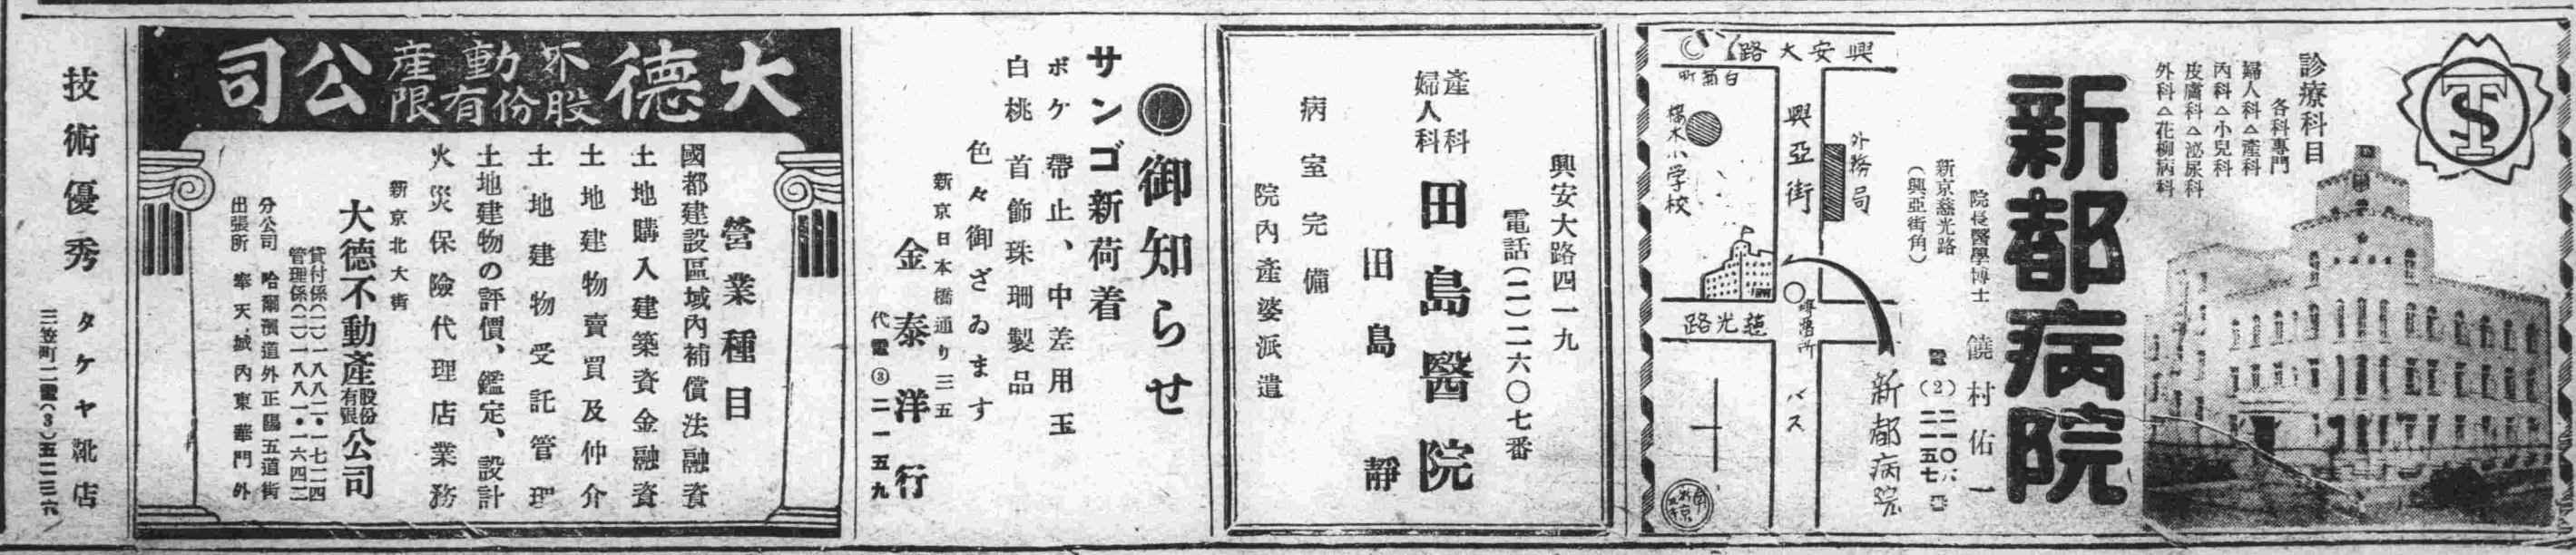 診療科目
各科專門
婦人科△產科
内科△小兒科
皮膚科△泌尿科
外科△花柳病科
新都病院
院長醫學博士 饒村佑一
新京慈光路
(興亞街角)
電(2)
二一〇六
二一五七
番
興安大路
白菊町
外務局
興亞街
小学校
慈光路
バス
新都病院
興安大路四一九
電話(二)二六〇七番
產科
婦人科
田島醫院
田島靜
病室完備
院內產婆派遣
御知らせ
サンゴ新荷着
ボケ 帶止、中差用玉
白桃 首飾珠珊製品
色々御ざゐます
新京日本橋通り三五
金泰洋行
代電③二一五九
大德不動產股份有限公司
營業種目
國都建設區域內補償法融資
土地購入建築資金融資
土地建物賣買及仲介
土地建物受託管理
土地建物の評價、鑑定、設計
火災保險代理店業務
新京北大街
大德不動產股份有限公司
貸付係(二)一八八二・一七二四
管理係(二)一八八一・一六四二
分公司 哈爾濱道外正陽五道街
出張所 奉天城內東華門外
技術優秀
タケヤ靴店
三笠町二電(3)五二三六